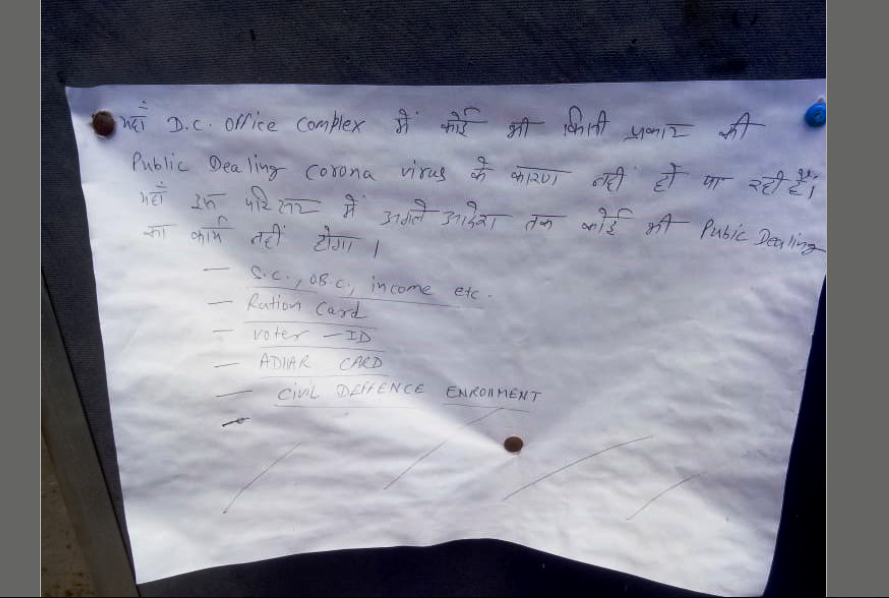 यहाँ D.C. office complex में कोई भी किसी प्रकार की
Public Dealing corona virus के कारण नहीं हो पा रही है।
यहाँ इस परिसर में अगले आदेश तक कोई भी Pubic Dealing
का कार्य नहीं होगा।
— S.C., OB.C., income etc.
— Ration Card
— voter - ID
— ADHAR CARD
— CIVIL DEFFENCE ENROMMENT